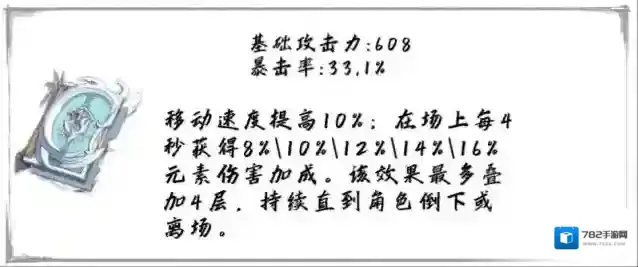 基础攻击力:608
暴击率:33.1%
移动速度提高10%；在场上每4
秒获得8%\10%\12%\14%\16%
元素伤害加成。该效果最多叠
加4层，持续直到角色倒下或
离场。
782手游网